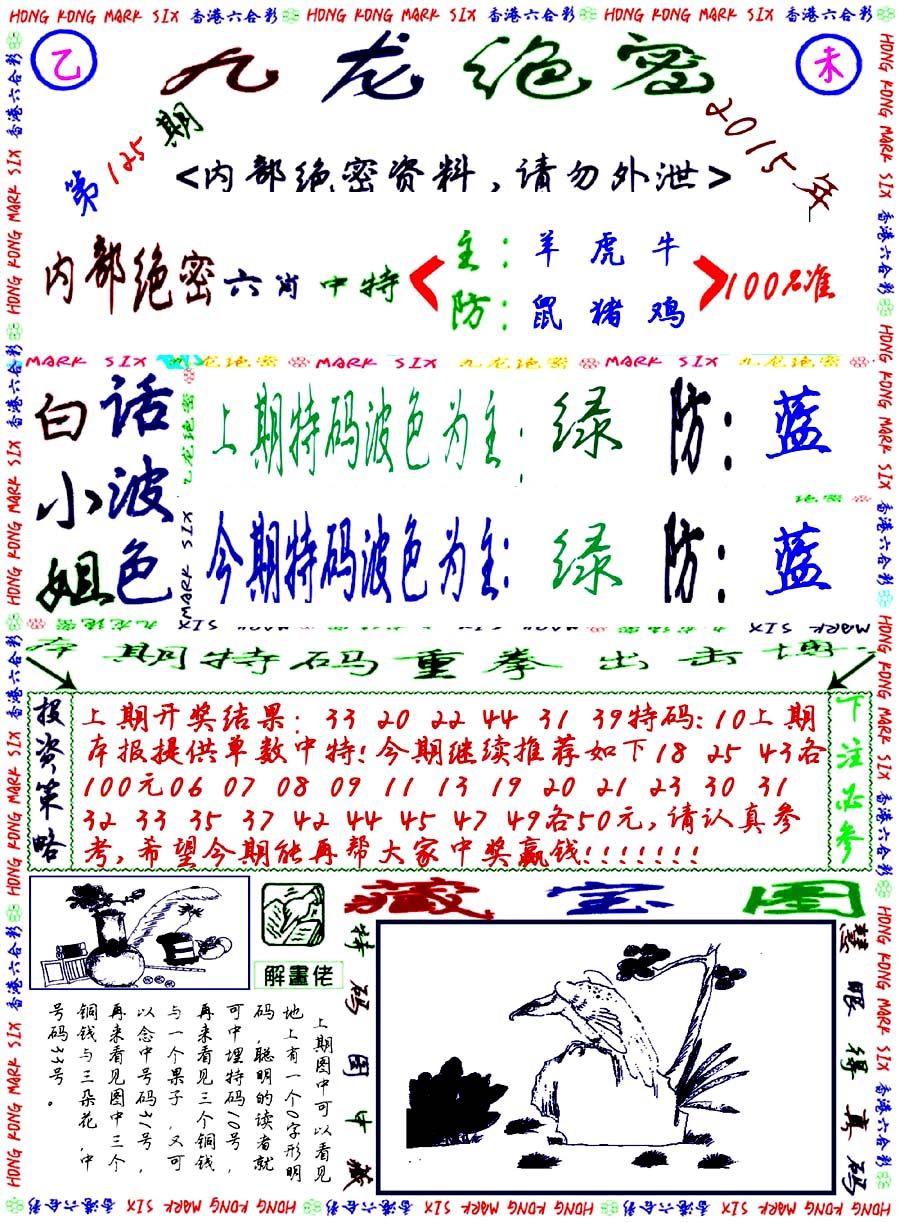 HONG KONG MARK SIX 香港六合彩 HONG KONG MARK SIX 香港六合彩 HONG KONG MARK SIX 香港六合彩
乙
九龙绝密
未
第125期
2015年
<内部绝密资料,请勿外泄>
内部绝密六肖中特
主:羊虎牛
防:鼠猪鸡
100%准
MARK SIX 九龙绝密 MARK SIX 九龙绝密 MARK SIX 九龙绝密
白小姐
话波色
上期特码波色为主:绿 防:蓝
今期特码波色为主:绿 防:蓝
本期特码重拳出击博
投资策略
上期开奖结果:33 20 22 44 31 39特码:10上期
本报提供单数中特!今期继续推荐如下18 25 43各
100元06 07 08 09 11 13 19 20 21 23 30 31
32 33 35 37 42 44 45 47 49各50元,请认真参
考,希望今期能再帮大家中奖赢钱!!!!!!!
下注必参
藏宝图
解畫佬
特码图中藏
慧眼得真码
上期图中可以看见
地上有一个0字形明
码,聪明的读者就
可中埋特码10号,
再来看见三个铜钱
与一个果子,又可
以念中号码31号,
再来看见图中三个
铜钱与三朵花,中
号码33号。